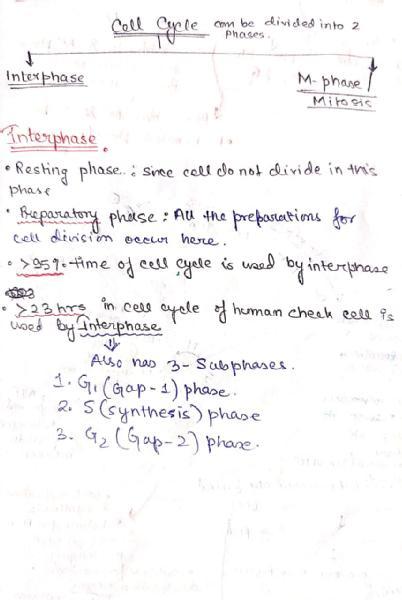 Cell Cycle can be divided into 2
phases.
Interphase
M-phase/
Mitosis
Interphase.
• Resting phase.. : since cell do not divide in this
phase
• Preparatory phase : All the preparations for
cell division occur here.
• >95% time of cell cycle is used by interphase
• >23 hrs in cell cycle of human cheek cell is
used by Interphase
Also has 3-Subphases.
1. G1 (Gap-1) phase.
2. S (synthesis) phase
3. G2 (Gap-2) phase.